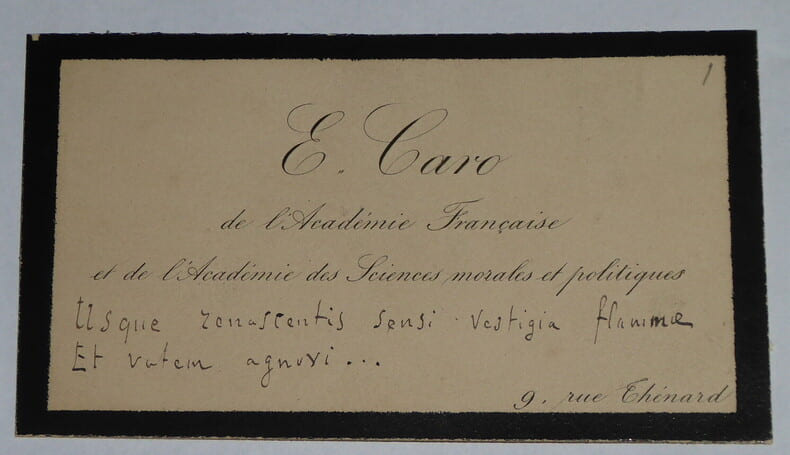 1
E. Caro
de l'Académie Française
et de l'Académie des Sciences morales et politiques
Usque renascentis sensi vestigia flammæ
Et vatem agnovi...
9, rue Thénard